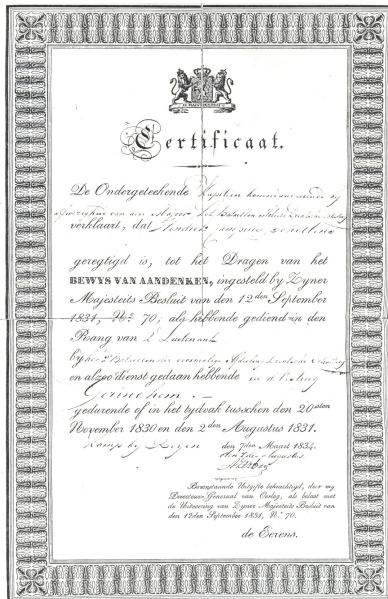 JE MAINTIENDRAI
Certificaat.
De Ondergeteekende Kapitein kommanderende by
afwezigheid van den Majoor het Bataillon
verklaart, dat
geregtigd is, tot het Dragen van het
BEWYS VAN AANDENKEN, ingesteld by Zyner
Majesteits Besluit van den 12den September
1831, No. 70; als hebbende gediend in den
Rang van 2e Luitenant
by het 2e Bataillon der Afdeeling
en alzoo dienst gedaan hebbende in de
Gorinchem
gedurende of in het tydvak tusschen den 20sten
November 1830 en den 2den Augustus 1831.
Kamp by Reyen den 7den Maart 1834.
den Augustus
Bovenstaande Uitgifte bekrachtigd, door my
Directeur-Generaal van Oorlog, als belast met
de Uitvoering van Zyner Majesteits Besluit van
den 12den September 1831, No. 70.
de Eerens.